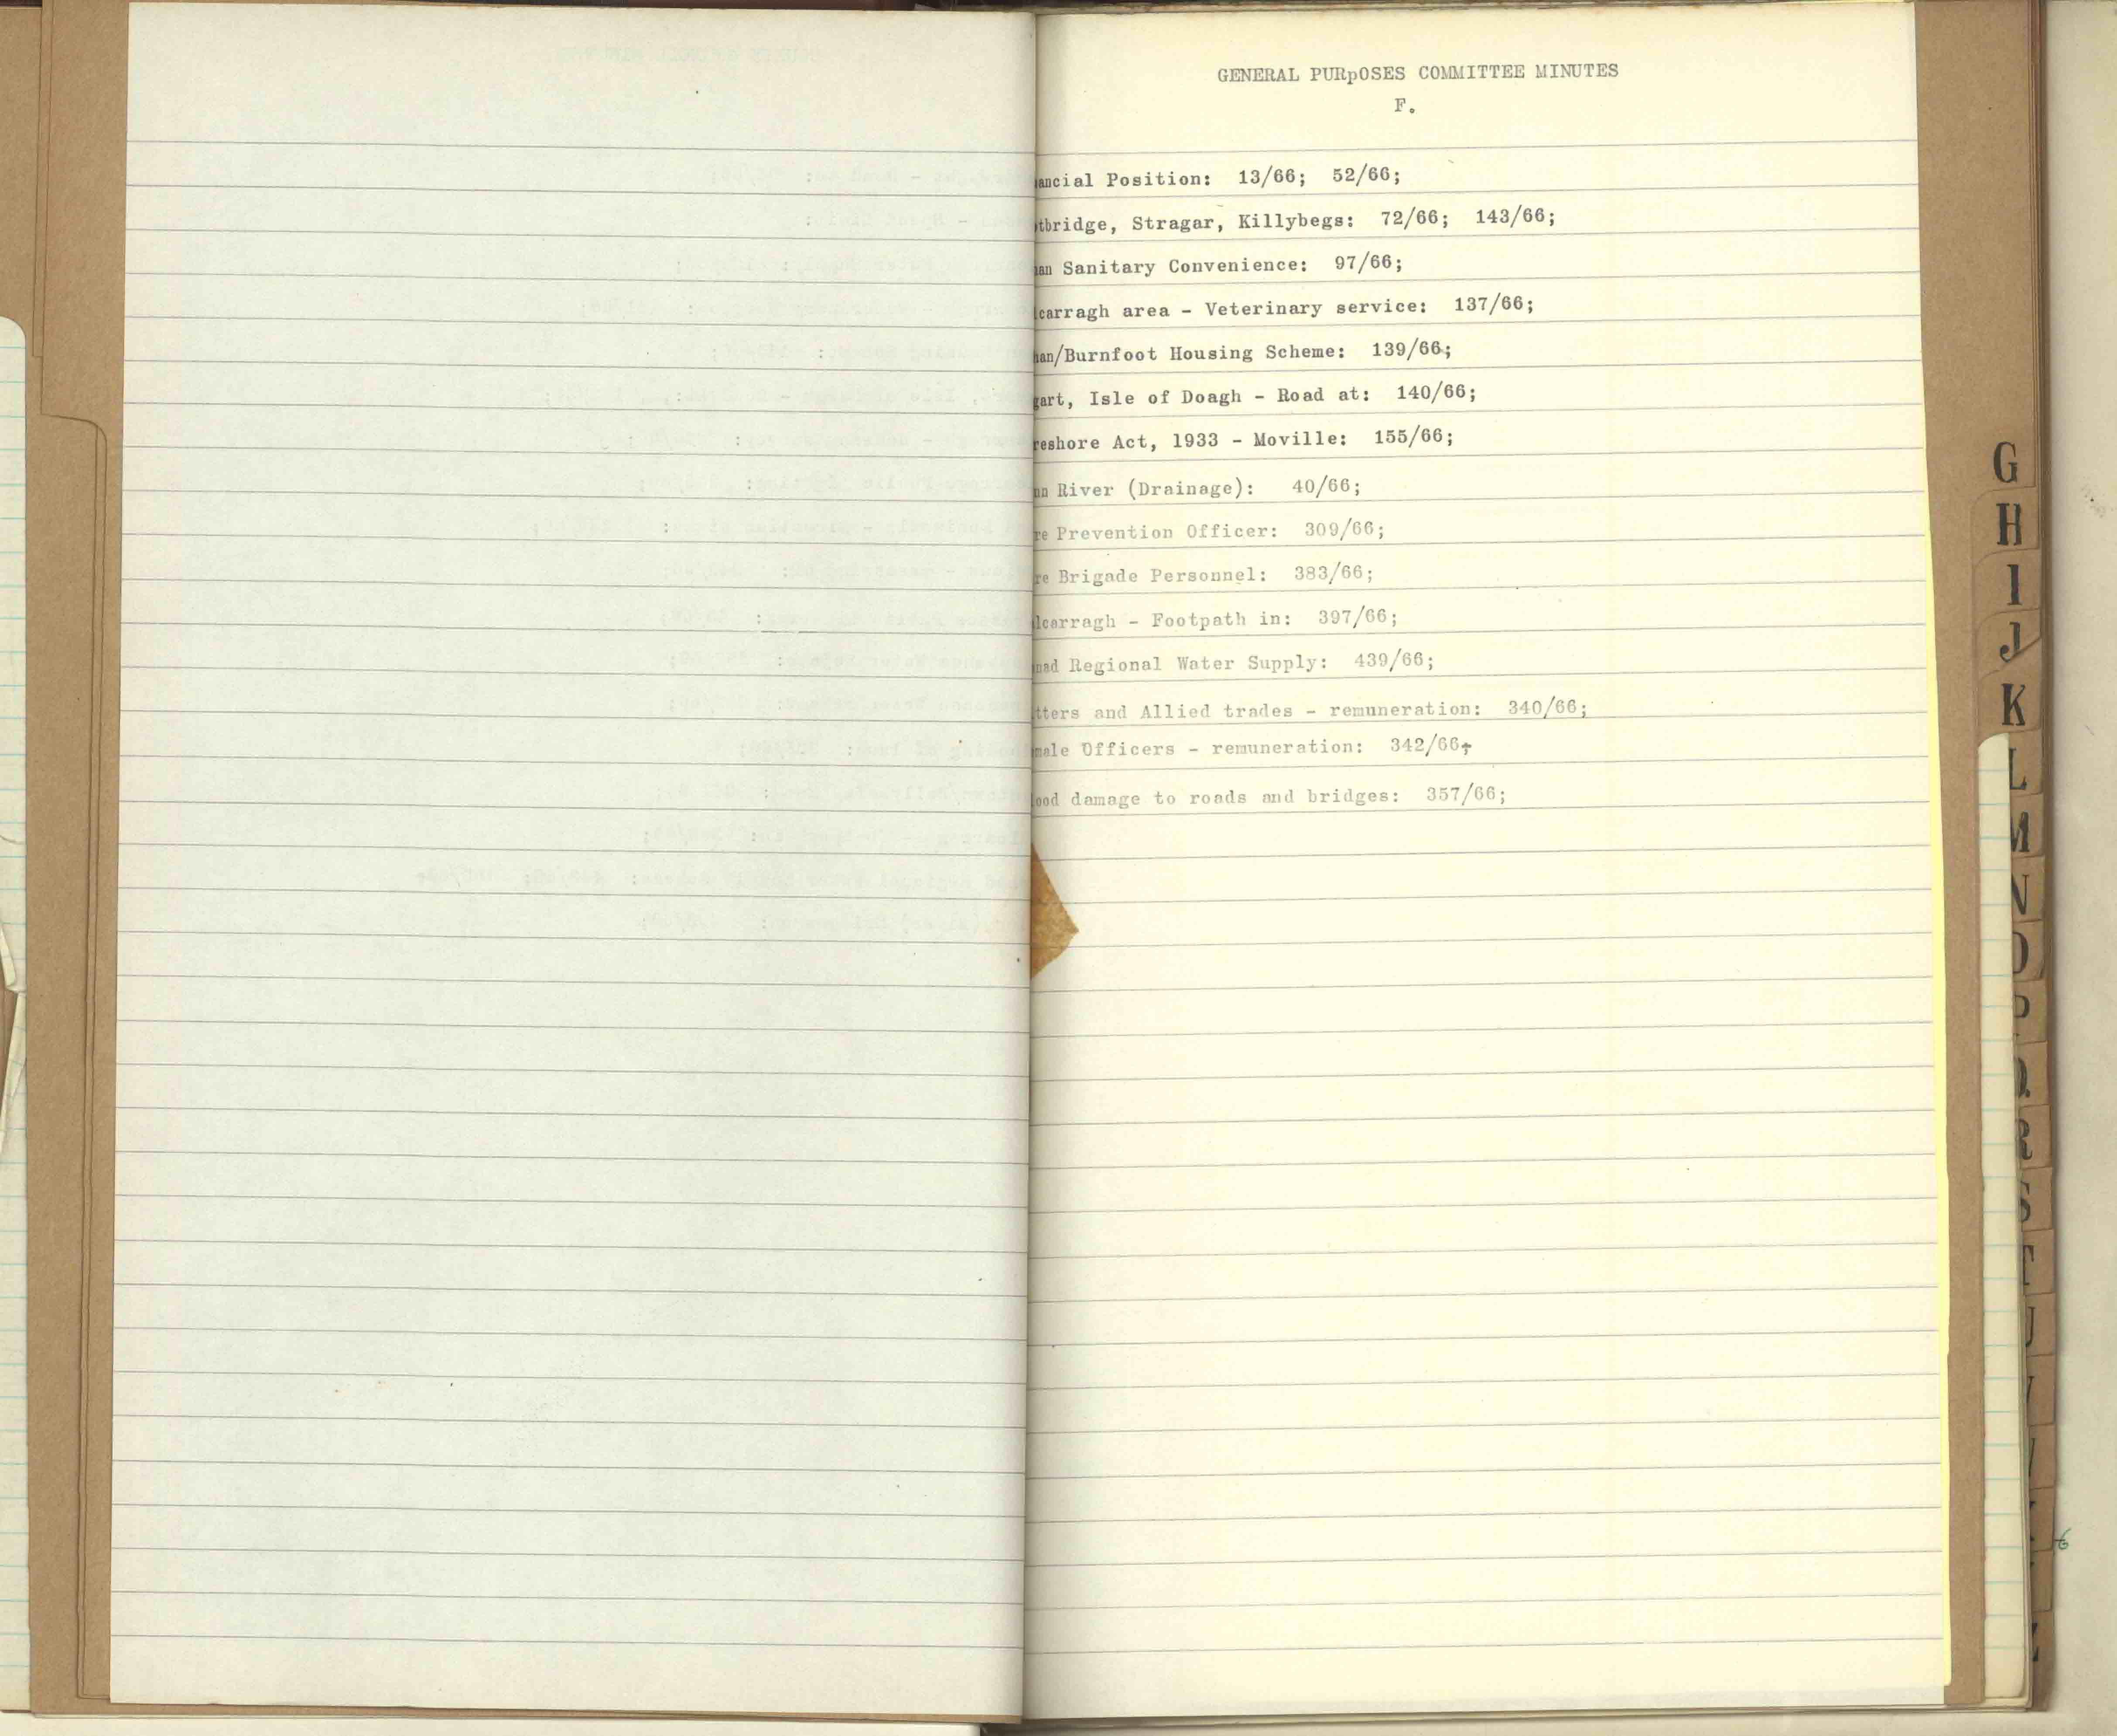 GENERAL PURpOSES COMMITTEE MINUTES
F.
ancial Position: 13/66; 52/66;
tbridge, Stragar, Killybegs: 72/66; 143/66;
an Sanitary Convenience: 97/66;
carragh area - Veterinary service: 137/66;
han/Burnfoot Housing Scheme: 139/66;
gart, Isle of Doagh - Road at: 140/66;
reshore Act, 1933 - Moville: 155/66;
nn River (Drainage): 40/66;
re Prevention Officer: 309/66;
re Brigade Personnel: 383/66;
lcarragh - Footpath in: 397/66;
nad Regional Water Supply: 439/66;
tters and Allied trades - remuneration: 340/66;
male Officers - remuneration: 342/66;
ood damage to roads and bridges: 357/66;
G
H
I
J
K
L
M
N
O
P
Q
R
S
T
U
V